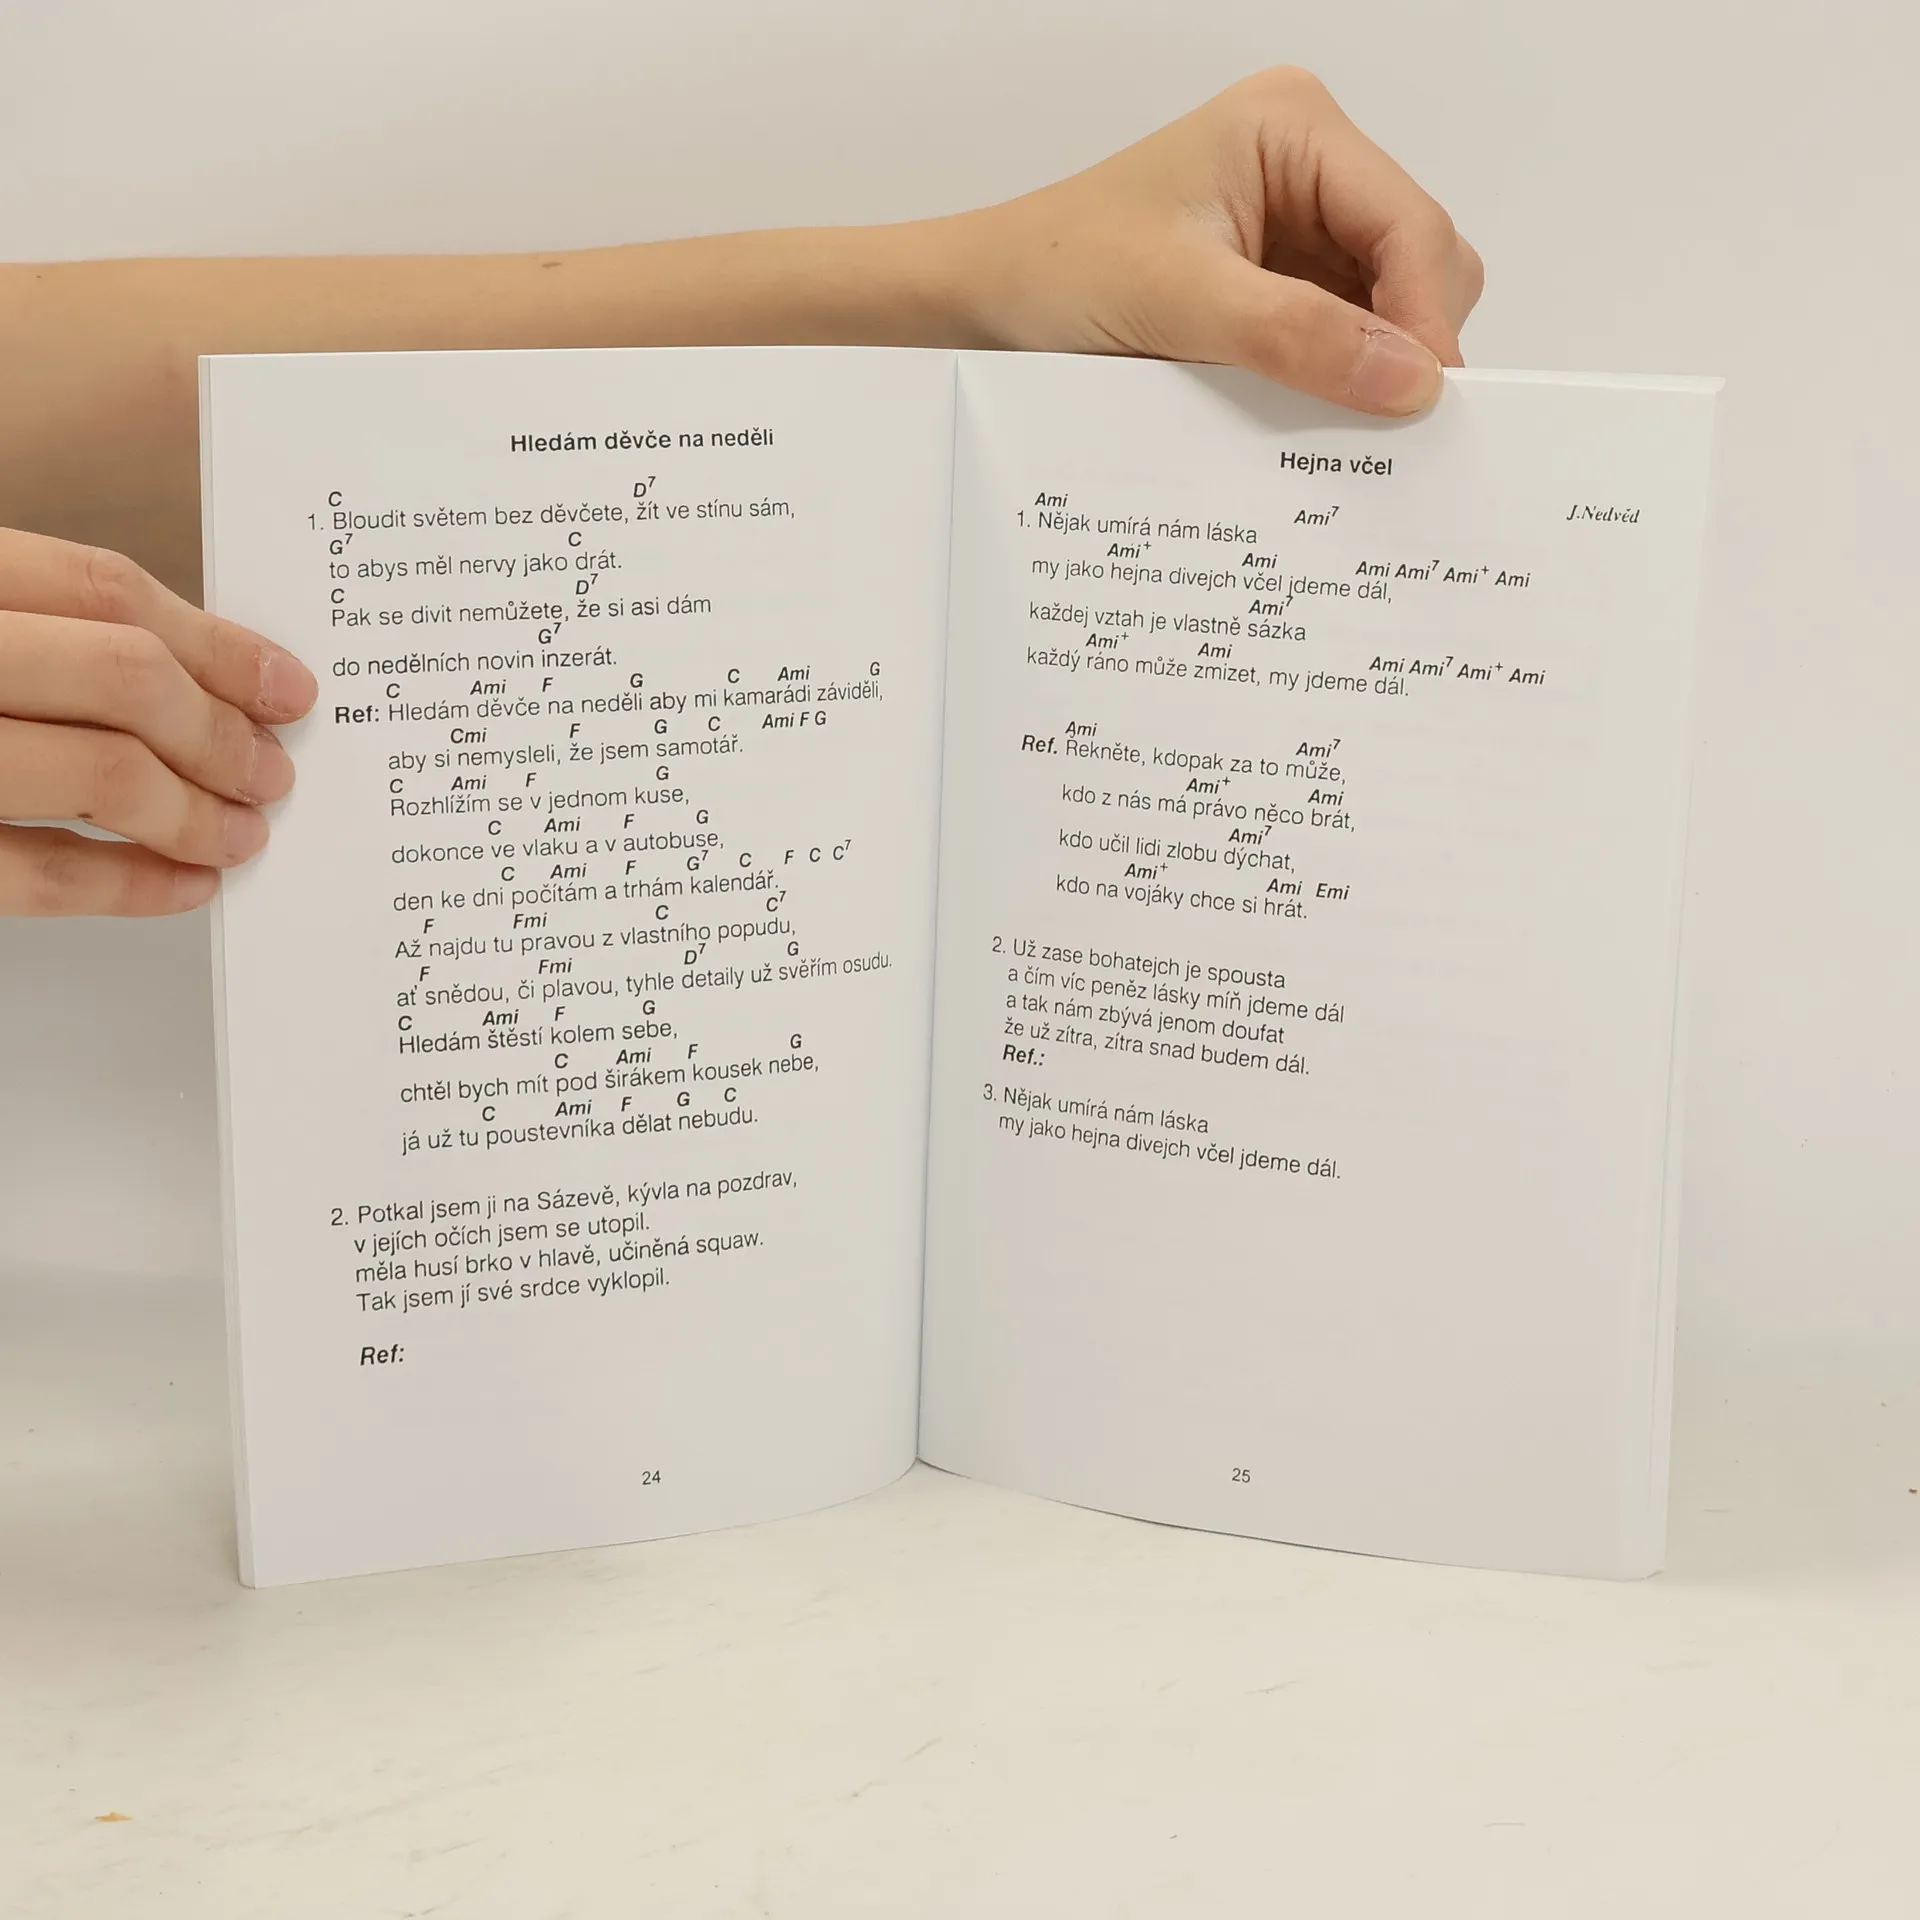 Hledám děvče na neděli
C D7
1. Bloudit světem bez děvčete, žít ve stínu sám,
G7 C
to abys měl nervy jako drát.
C D7
Pak se divit nemůžete, že si asi dám
G7
do nedělních novin inzerát.
C Ami F G C Ami G
Ref: Hledám děvče na neděli aby mi kamarádi záviděli,
Cmi F G C Ami F G
aby si nemysleli, že jsem samotář.
C Ami F G
Rozhlížím se v jednom kuse,
C Ami F G
dokonce ve vlaku a v autobuse,
C Ami F G7 C F C C7
den ke dni počítám a trhám kalendář.
F Fmi C C7
Až najdu tu pravou z vlastního popudu,
F Fmi D7 G
ať snědou, či plavou, tyhle detaily už svěřím osudu.
C Ami F G
Hledám štěstí kolem sebe,
C Ami F G
chtěl bych mít pod širákem kousek nebe,
C Ami F G C
já už tu poustevníka dělat nebudu.
2. Potkal jsem ji na Sázevě, kývla na pozdrav,
v jejích očích jsem se utopil.
měla husí brko v hlavě, učiněná squaw.
Tak jsem jí své srdce vyklopil.
Ref:
24
Hejna včel
J.Nedvěd
Ami Ami7
1. Nějak umírá nám láska
Ami+ Ami Ami Ami7 Ami+ Ami
my jako hejna divejch včel jdeme dál,
Ami7
každej vztah je vlastně sázka
Ami+ Ami Ami Ami7 Ami+ Ami
každý ráno může zmizet, my jdeme dál.
Ami Ami7
Ref. Řekněte, kdopak za to může,
Ami+ Ami
kdo z nás má právo něco brát,
Ami7
kdo učil lidi zlobu dýchat,
Ami+ Ami Emi
kdo na vojáky chce si hrát.
2. Už zase bohatejch je spousta
a čím víc peněz lásky míň jdeme dál
a tak nám zbývá jenom doufat
že už zítra, zítra snad budem dál.
Ref.:
3. Nějak umírá nám láska
my jako hejna divejch včel jdeme dál.
25